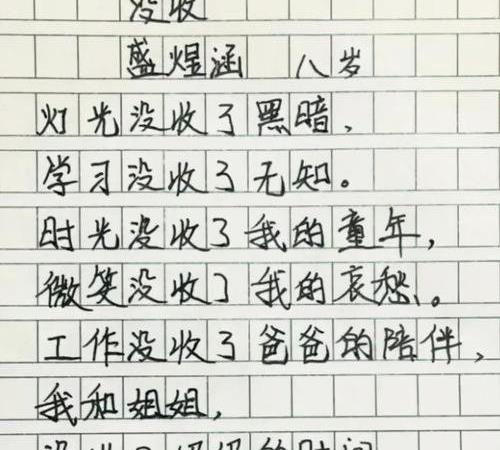 没收
盛煜涵 八岁
灯光没收了黑暗、
学习没收了无知。
时光没收了我的童年,
微笑没收了我的哀愁、。
工作没收了爸爸的陪伴,
我和姐姐,
没收了妈妈的时间